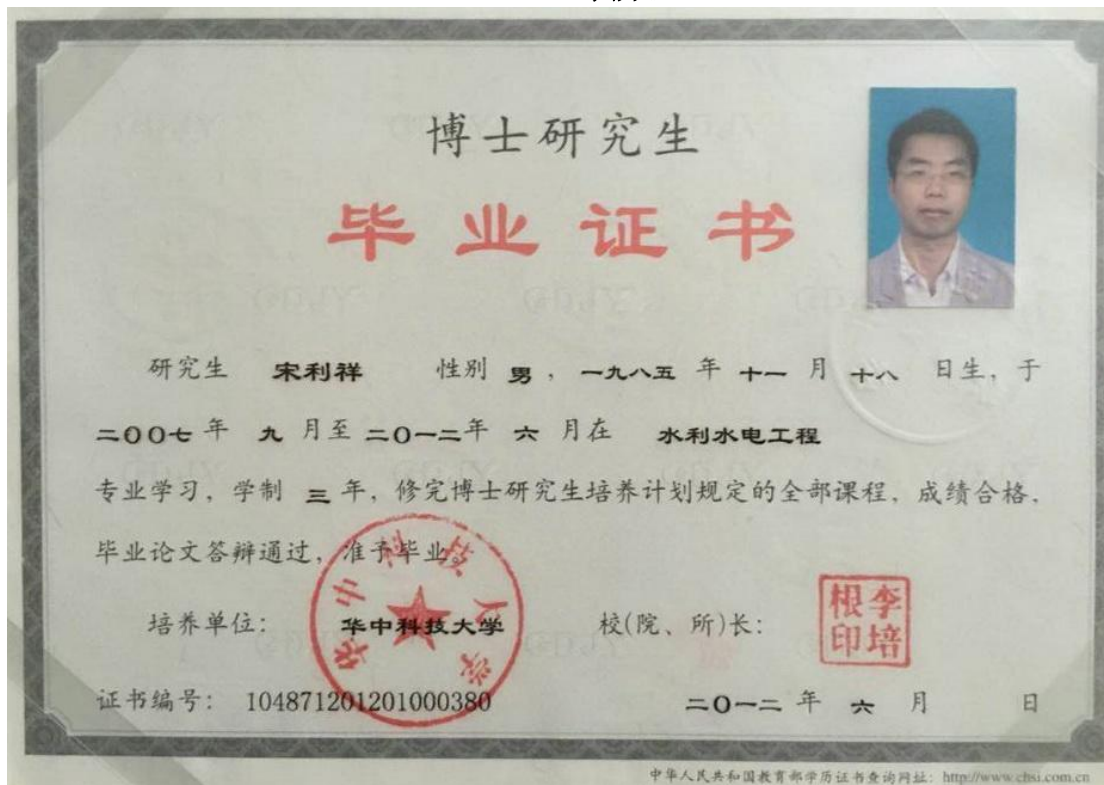 博士研究生
毕业证书
研究生 宋利祥 性别 男，一九八五 年 十一 月 十八 日生，于
二〇〇七 年 九 月至 二〇一二年 六 月在 水利水电工程
专业学习，学制 三 年，修完博士研究生培养计划规定的全部课程，成绩合格，
毕业论文答辩通过，准予毕业
华中科技大学
培养单位： 华中科技大学 校(院、所)长： 李培根印
证书编号： 104871201201000380 二〇一二 年 六 月 日
中华人民共和国教育部学历证书查询网址：http://www.chsi.com.cn